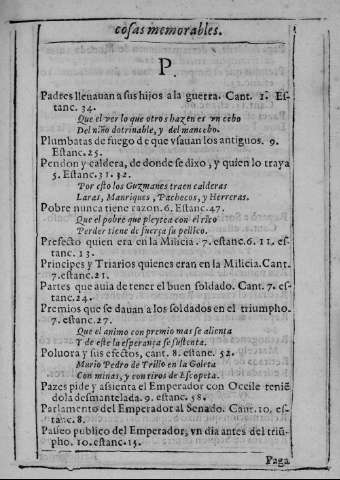 cosas memorables.
P.
Padres lleuauan a sus hijos a la guerra. Cant. 1. Es-
tanc. 34.
Que el ver lo que otros hazen es vn cebo
Del niño dotrinable, y del mancebo.
Plumbatas de fuego de que vsauan los antiguos. 9.
Estanc. 25.
Pendon y caldera, de donde se dixo, y quien lo traya
5. Estanc. 31. 32.
Por esto los Guzmanes traen calderas
Laras, Manriques, Pachecos, y Herreras.
Pobre nunca tiene razon. 6. Estanc. 47.
Que el pobre que pleytea con el rico
Perder tiene de fuerça su pellico.
Prefecto quien era en la Milicia. 7. estanc. 6. 11. es-
tanc. 13.
Principes y Triarios quienes eran en la Milicia. Cant.
7. estanc. 21.
Partes que auia de tener el buen soldado. Cant. 7. es-
tanc. 24.
Premios que se dauan a los soldados en el triumpho.
7. estanc. 27.
Que el animo con premio mas se alienta
Y de este la esperança se sustenta.
Poluora y sus efectos, cant. 8. estanc. 52.
Murio Pedro de Trillo en la Goleta
Con minas, y con tiros de Escopeta.
Pazes pide y assienta el Emperador con Occile teniē
dola desmantelada. 9. estanc. 58.
Parlamento del Emperador al Senado. Cant. 10. es-
tanc. 8.
Passeo publico del Emperador, vn dia antes del triū-
pho. 10. estanc. 15.
Paga